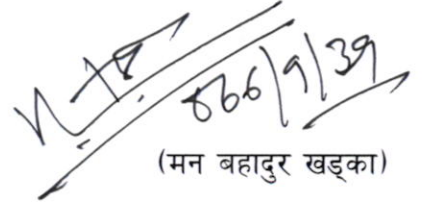 ०६६/१/३१
(मन बहादुर खड्का)